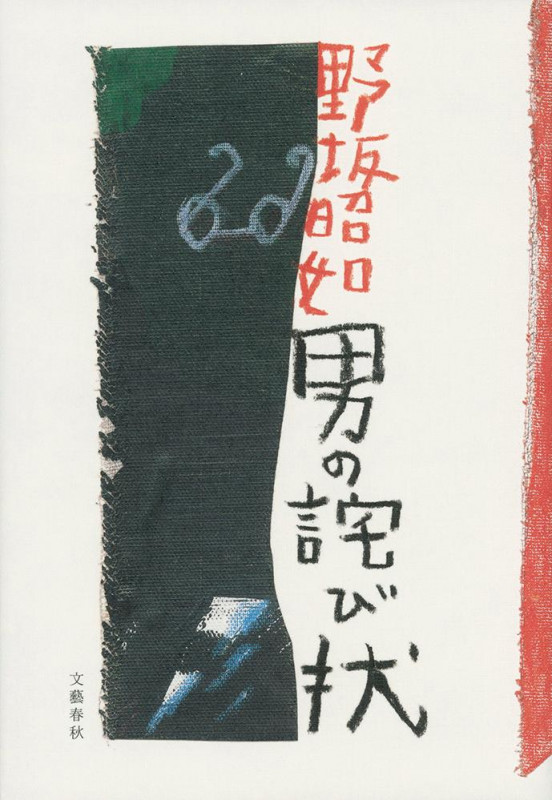 野坂昭如
男の詫び状
文藝春秋